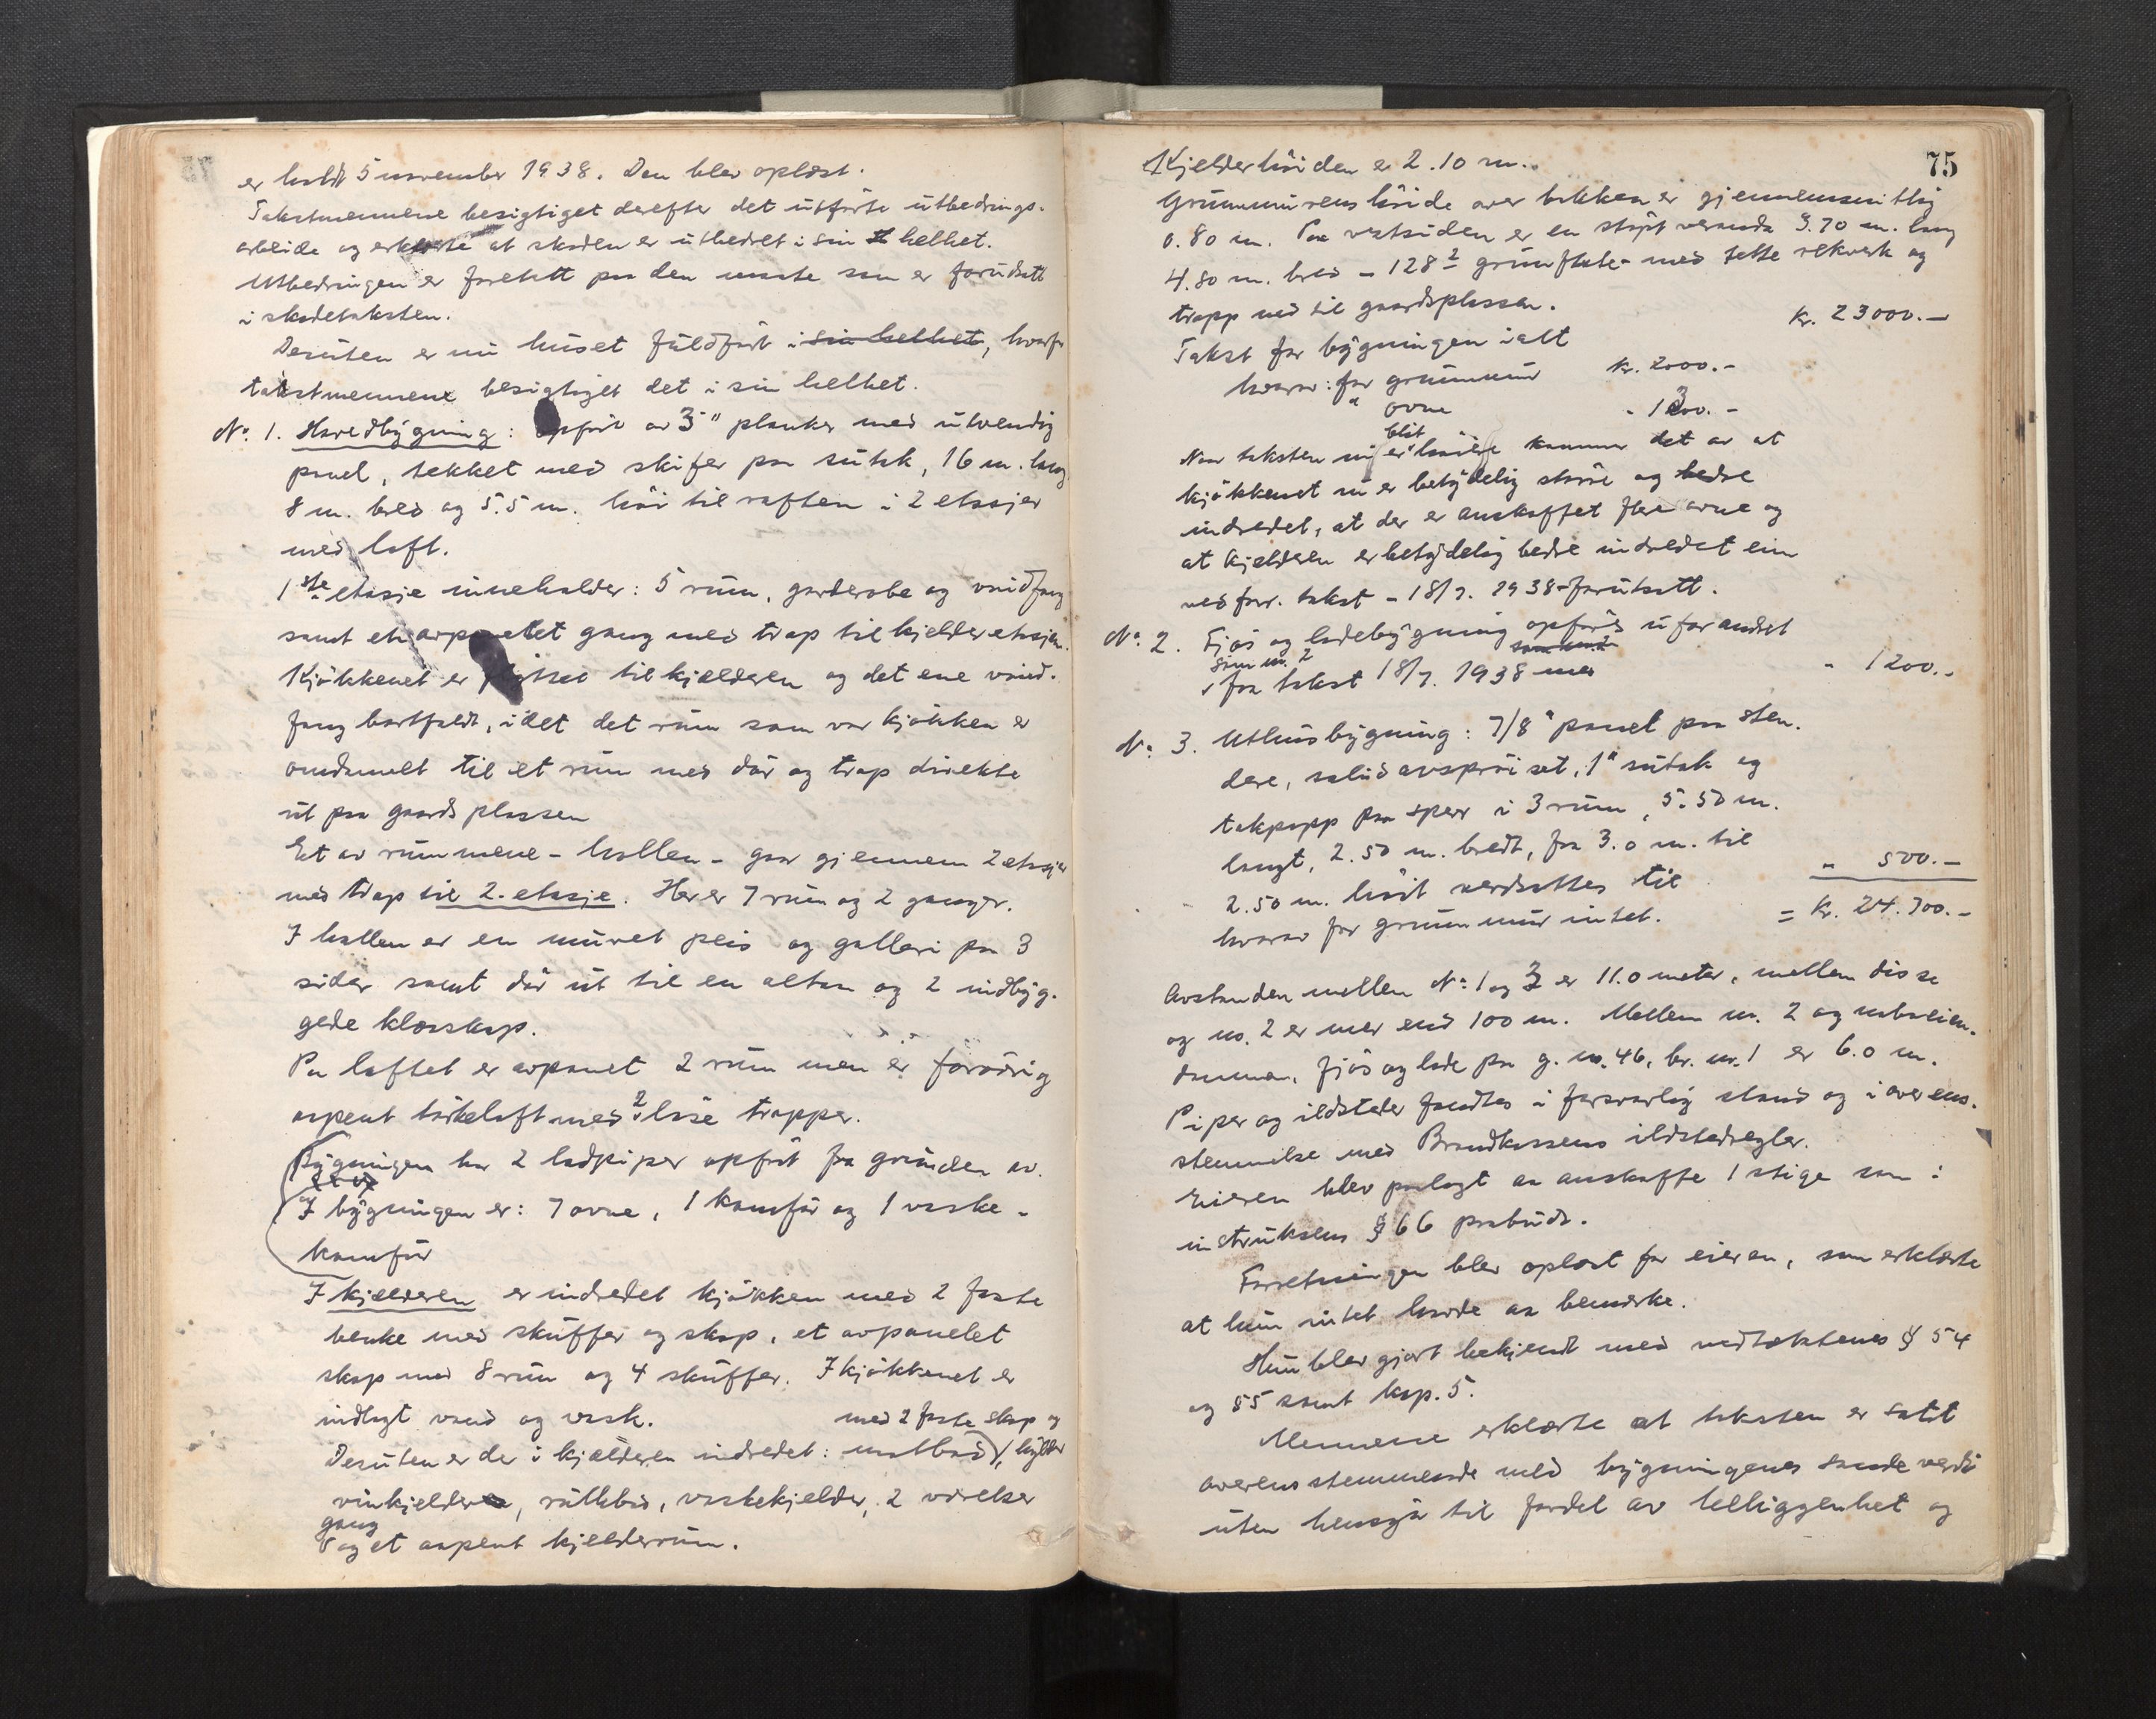 er holdt 5 november 1938. Den blev oplæst.
Takstmennene besigtiget derefter det utførte utbedrings-
arbeide og erklærte at skaden er utbedret i sin helhet.
Utbedringen er foretatt paa den maate som er forudsatt
i skadetaksten.
Desuten er nu huset fuldført i sin helhet, hvorfor
takstmennene besigtiget det i sin helhet.
No. 1. Hovedbygning: Opført av 3" planker med utvendig
panel, tekket med skifer paa sutak, 16 m. lang
8 m. bred og 5.5 m. høi til raften i 2 etasjer
med loft.
1ste etasje inneholder: 5 rum, garderobe og vindfang
samt et avpanelet gang med trap til kjelderetasjen.
Kjøkkenet er flyttet til kjælderen og det ene vind-
fang bortfaldt, idet det rum som var kjøkken er
omdannet til et rum med dør og trap direkte
ut paa gaardsplassen
Et av rummene - hallen - gaar gjennem 2 etasjer
med trap til 2. etasje. Her er 7 rum og 2 ganger.
I hallen er en muret peis og galleri paa 3
sider samt dør ut til en altan og 2 indbyg-
gede klæsskap.
Paa loftet er avpanet 2 rum men er forøvrig
aapent tørkeloft med 2 løse trapper.
Bygningen har 2 ladpiper opført fra grunden av.
I bygningen er: 7 ovne, 1 komfür og 1 vaske-
komfür
I kjælderen er indredet kjøkken med 2 faste
benke med skuffer og skap, et avpanelet
skap med 8 rum og 4 skuffer. I kjøkkenet er
indlagt vand og vask.
med 2 faste skap og
Desuten er der i kjælderen indredet: matbod, hylder
vinkjelder, rullebod, vaskekjelder, 2 værelser
gang
og et aapent kjelderrum.
75
Kjelderhøiden er 2.10 m.
Grunnmurens høide over bakken er gjennemsnitlig
0.80 m. Paa vestsiden er en støpt veranda 3.70 m. lang
4.80 m. bred - 128 2 grunnflate - med tette rekverk og
trapp ned til gaardsplassen.
Takst for bygningen ialt kr. 23000.-
hvorav: for grunnmur kr. 2000.-
" ovne - 1300.-
blit
Naar taksten nu er høiere kommer det av at
kjøkkenet nu er betydelig større og bedre
indredet, at der er anskaffet flere ovne og
at kjælderen er betydelig bedre indredet enn
ved forr. takst - 18/7. 1938 - forutsatt.
No. 2. Fjøs og ladebygning opføres uforandret
som nr. 2
fra takst 18/7. 1938 - 1200.-
No. 3. Uthusbygning: 7/8" panel paa sten-
dere, solid avsprøiset, 1" sutak og
takpapp paa sperr i 3 rum, 5.50 m.
langt, 2.50 m. bredt, fra 3.0 m. til
2.50 m. høit verdsattes til " 500.-
hvorav for grunnmur intet. = Kr. 24.700.-
Avstanden mellem No. 1 og 3 er 11.0 meter, mellem disse
og no. 2 er mer end 100 m. Mellem nr. 2 og naboeien-
dommen, fjøs og lade paa g. nr. 46, br. nr. 1 er 6.0 m.
Piper og ildsteder fandtes i forsvarlig stand og i overens-
stemmelse med Brandkassens ildstedregler.
Eieren blev paalagt aa anskaffe 1 stige som i
instruksens § 66 paabudt.
Forretningen blev oplæst for eieren, som erklærte
at hun intet hadde aa bemerke.
Hun blev gjort bekjendt med vedtektenes § 54
og 55 samt kap. 5.
Mennene erklærte at taksten er satt
overensstemmende med bygningenes sande verdi
uten hensyn til fordel av beliggenhet og